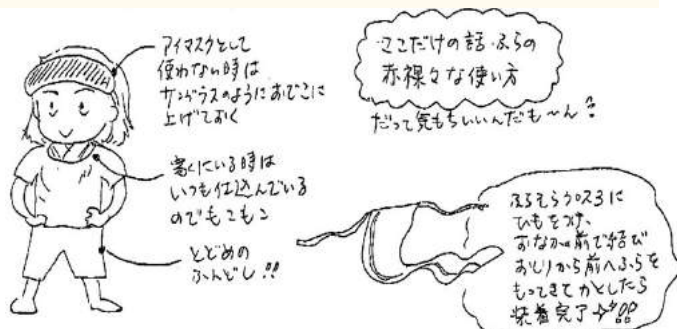 アイマスクとして
使わない時は
サングラスのようにおでこに
上げておく
家にいる時は
いつも仕込んでいる
のでもこもこ
とどめの
ふんどし!!
ここだけの話・ふらの
赤裸々な使い方
だって気もちいいんだも〜ん
ひもをつけ、
おなかの前で結び
おしりから前へふらを
もってきて
たらしたら
装着完了